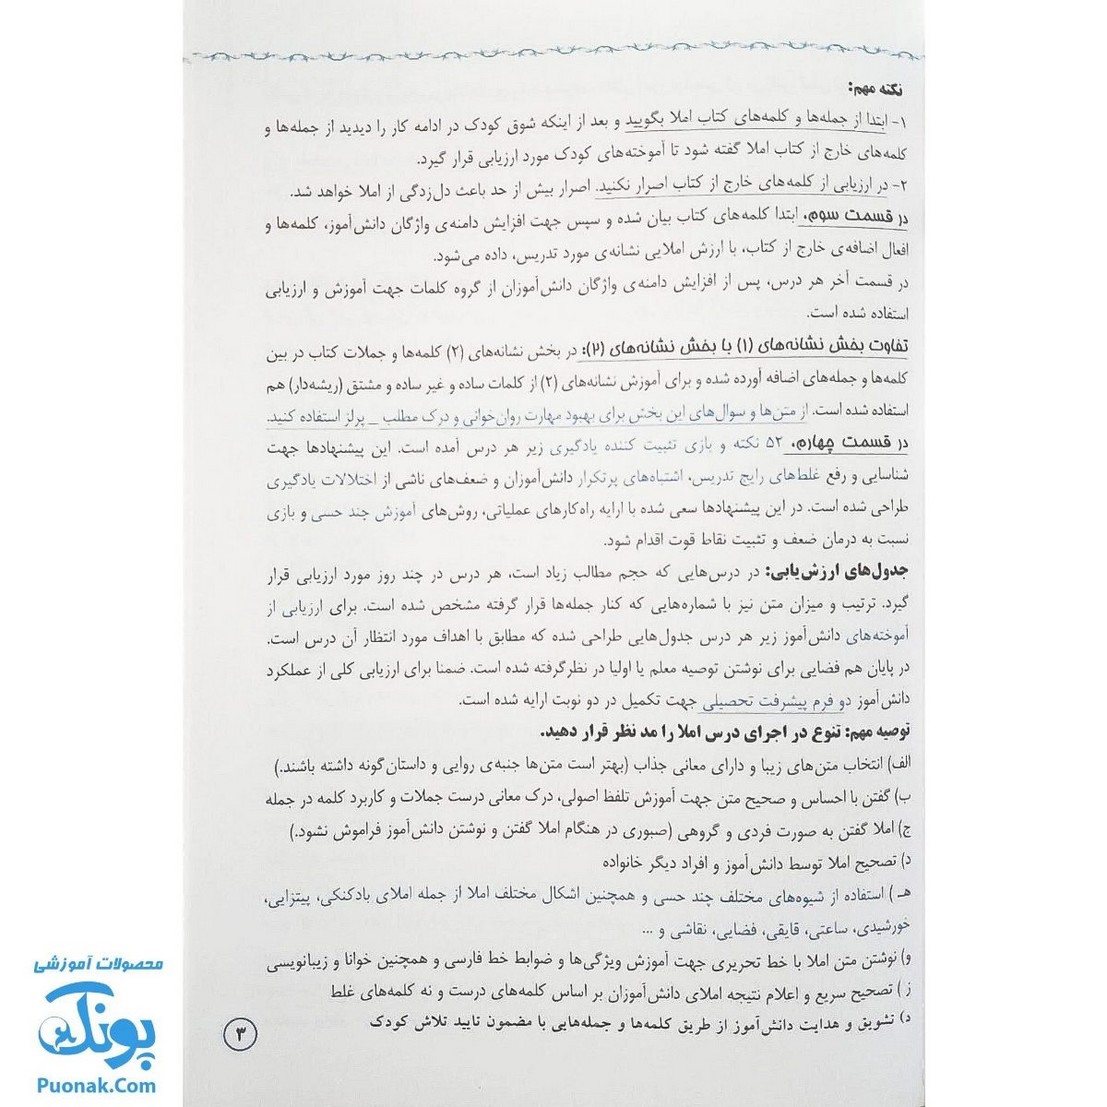 نکته مهم:
۱- ابتدا از جمله‌ها و کلمه‌های کتاب املا بگویید و بعد از اینکه شوق کودک در ادامه کار را دیدید از جمله‌ها و
کلمه‌های خارج از کتاب املا گفته شود تا آموخته‌های کودک مورد ارزیابی قرار گیرد.
۲- در ارزیابی از کلمه‌های خارج از کتاب اصرار نکنید. اصرار بیش از حد باعث دل‌زدگی از املا خواهد شد.
در قسمت سوم، ابتدا کلمه‌های کتاب بیان شده و سپس جهت افزایش دامنه‌ی واژگان دانش‌آموز، کلمه‌ها و
افعال اضافه‌ی خارج از کتاب، با ارزش املایی نشانه‌ی مورد تدریس، داده می‌شود.
در قسمت آخر هر درس، پس از افزایش دامنه‌ی واژگان دانش‌آموزان از گروه کلمات جهت آموزش و ارزیابی
استفاده شده است.
تفاوت بخش نشانه‌های (۱) با بخش نشانه‌های (۲): در بخش نشانه‌های (۲) کلمه‌ها و جملات کتاب در بین
کلمه‌ها و جمله‌های اضافه آورده شده و برای آموزش نشانه‌های (۲) از کلمات ساده و غیر ساده و مشتق (ریشه‌دار) هم
استفاده شده است. از متن‌ها و سوال‌های این بخش برای بهبود مهارت روان‌خوانی و درک مطلب _ پرلز استفاده کنید.
در قسمت چهارم، ۵۲ نکته و بازی تثبیت کننده یادگیری زیر هر درس آمده است. این پیشنهادها جهت
شناسایی و رفع غلط‌های رایج تدریس، اشتباه‌های پرتکرار دانش‌آموزان و ضعف‌های ناشی از اختلالات یادگیری
طراحی شده است. در این پیشنهادها سعی شده با ارایه راه‌کارهای عملیاتی، روش‌های آموزش چند حسی و بازی
نسبت به درمان ضعف و تثبیت نقاط قوت اقدام شود.
جدول‌های ارزش‌یابی: در درس‌هایی که حجم مطالب زیاد است، هر درس در چند روز مورد ارزیابی قرار
گیرد. ترتیب و میزان متن نیز با شماره‌هایی که کنار جمله‌ها قرار گرفته مشخص شده است. برای ارزیابی از
آموخته‌های دانش‌آموز زیر هر درس جدول‌هایی طراحی شده که مطابق با اهداف مورد انتظار آن درس است.
در پایان هم فضایی برای نوشتن توصیه معلم یا اولیا در نظرگرفته شده است. ضمنا برای ارزیابی کلی از عملکرد
دانش‌آموز دو فرم پیشرفت تحصیلی جهت تکمیل در دو نوبت ارایه شده است.
توصیه مهم: تنوع در اجرای درس املا را مد نظر قرار دهید.
الف) انتخاب متن‌های زیبا و دارای معانی جذاب (بهتر است متن‌ها جنبه‌ی روایی و داستان‌گونه داشته باشند.)
ب) گفتن با احساس و صحیح متن جهت آموزش تلفظ اصولی، درک معانی درست جملات و کاربرد کلمه در جمله
ج) املا گفتن به صورت فردی و گروهی (صبوری در هنگام املا گفتن و نوشتن دانش‌آموز فراموش نشود.)
د) تصحیح املا توسط دانش‌آموز و افراد دیگر خانواده
هـ) استفاده از شیوه‌های مختلف چند حسی و همچنین اشکال مختلف املا از جمله املای بادکنکی، پیتزایی،
خورشیدی، ساعتی، قایقی، فضایی، نقاشی و ...
و) نوشتن متن املا با خط تحریری جهت آموزش ویژگی‌ها و ضوابط خط فارسی و همچنین خوانا و زیبانویسی
ز) تصحیح سریع و اعلام نتیجه املای دانش‌آموزان بر اساس کلمه‌های درست و نه کلمه‌های غلط
د) تشویق و هدایت دانش‌آموز از طریق کلمه‌ها و جمله‌هایی با مضمون تایید تلاش کودک
۳
محصولات آموزشی
پونک
Puonak.Com